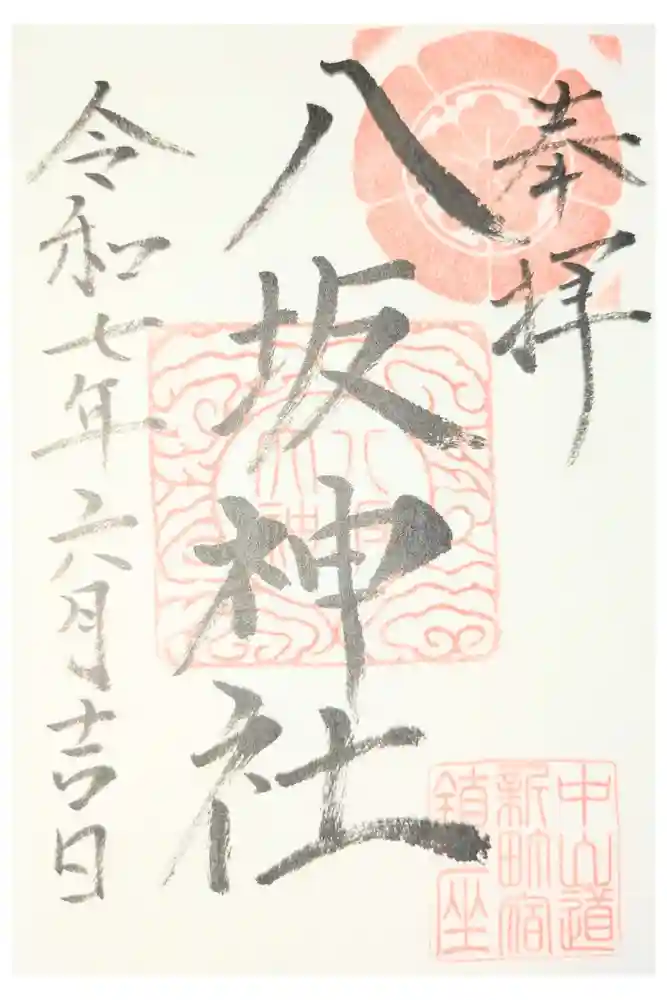 奉拝
八坂神社
令和七年六月吉日
中山道
新町宿
鎮座